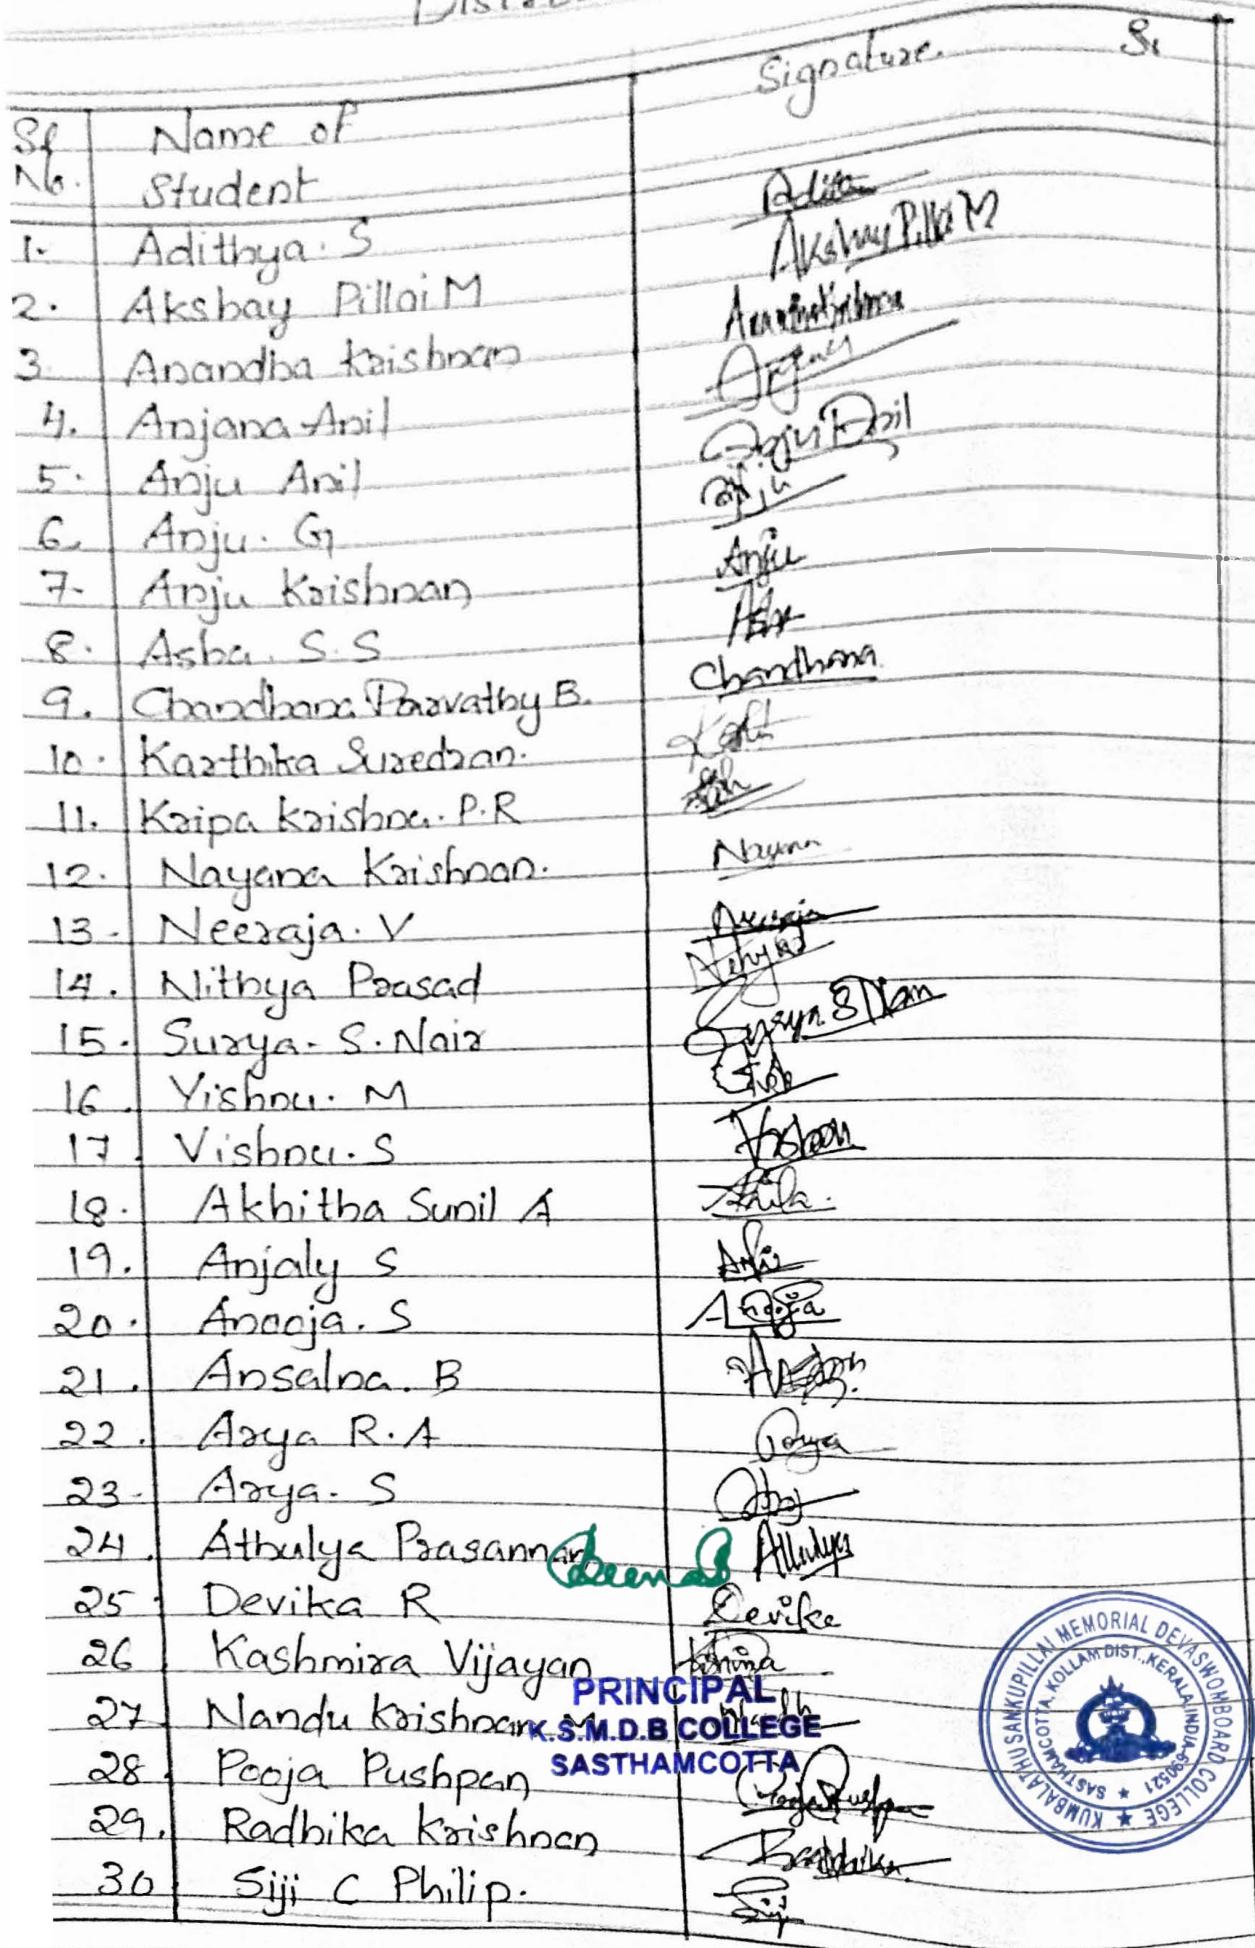 Signature
Sl No. Name of Student
1. Adithya. S Adithya
2. Akshay Pillai M Akshay Pillai M
3. Anandha Krishnan Anandha Krishnan
4. Anjana Anil
5. Anju Anil Anju Anil
6. Anju. G Anju
7. Anju Krishnan Anju
8. Asha. S. S Asha
9. Chandhana Parvathy B. Chandhana
10. Karthika Suredran.
11. Kripa Krishna. P.R
12. Nayana Krishnan. Nayana
13. Neeraja. V Neeraja
14. Nithya Prasad
15. Surya. S. Nair Surya S Nair
16. Vishnu. M
17. Vishnu. S Vishnu
18. Akhitha Sunil A
19. Anjaly S
20. Anooja. S Anooja
21. Ansalna. B
22. Arya R. A Arya
23. Arya. S
24. Athulya Prasannan Athulya
25. Devika R Devika
26 Kashmira Vijayan
27 Nandu Krishnan M
28 Pooja Pushpan Pooja Pushpan
29. Radhika Krishnan Radhika
30 Siji C Philip. Siji
PRINCIPAL
K.S.M.D.B COLLEGE
SASTHAMCOTTA
KUMBALATHU SANKUPILLAI MEMORIAL DEVASWOMBOARD COLLEGE
SASTHAMCOTTA, KOLLAM DIST., KERALA, INDIA-690521